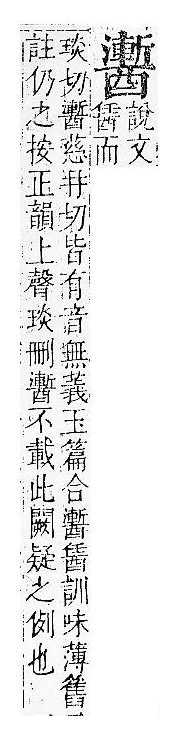 䤔
說文
而
琰切䤔慈冉切皆有音無義玉篇合䤔訓味薄舊
註仍之按正韻上聲琰刪䤔不載此闕疑之例也